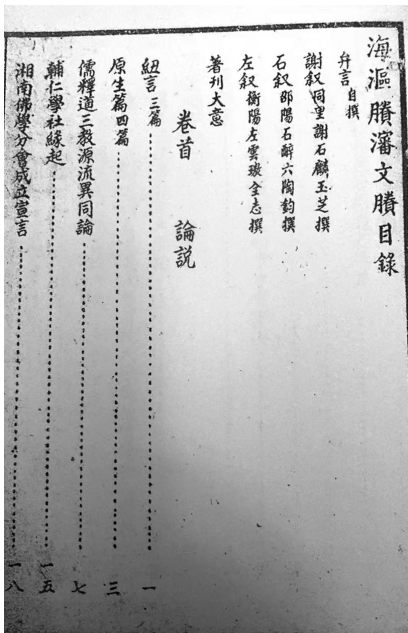 海漚賸瀋文賸目錄
弁言 自撰
謝叙 同里謝石麟玉芝撰
石叙 邵陽石醉六陶鈞撰
左叙 衡陽左雲璈全志撰
著刊大意
卷首 論說
紐言 三篇 一
原生篇 四篇 三
儒釋道三教源流異同論 七
輔仁學社緣起 一五
湘南佛學分會成立宣言 一八